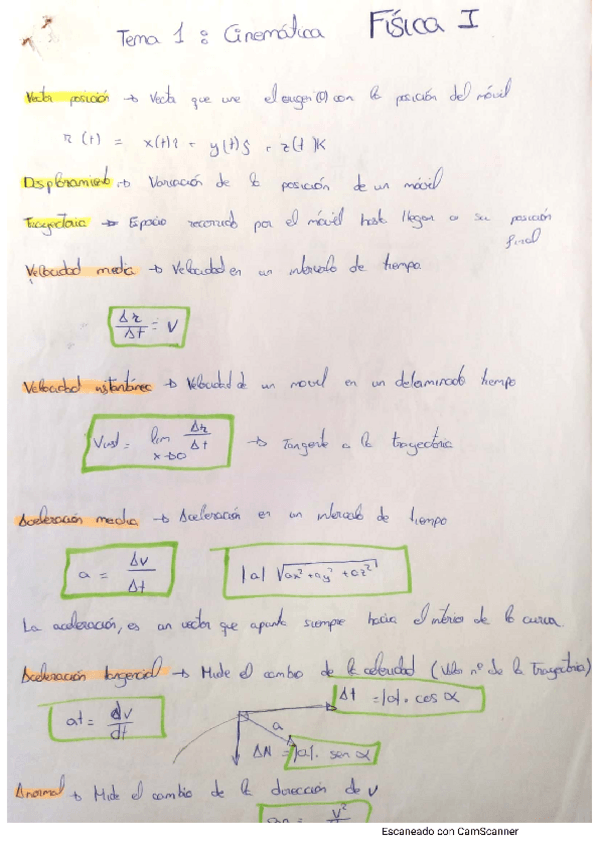 Tema 1 : Cinemática Física I
Vector posición → Vector que une el origen (0) con la posición del móvil
r (t) = x(t)i + y(t)j + z(t)K
Desplazamiento → Variación de la posición de un móvil
Trayectoria → Espacio recorrido por el móvil hasta llegar a su posición
final
Velocidad media → Velocidad en un intervalo de tiempo
Δr/Δt = V
Velocidad instantánea → Velocidad de un movil en un determinado tiempo
Vinst = lim x→0 Δr/Δt → Tangente a la trayectoria
Aceleración media → Aceleración en un intervalo de tiempo
a = Δv/Δt |a| √(ax² + ay² + az²)
La aceleración, es un vector que apunta siempre hacia el interior de la curva.
Aceleración tangencial → Mide el cambio de la celeridad (Valor nº de la Trayectoria)
at = dv/dt
At = |a|. cos α
a
AN = |a|. sen α
Anormal → Mide el cambio de la dirección de v
V²
Escaneado con CamScanner